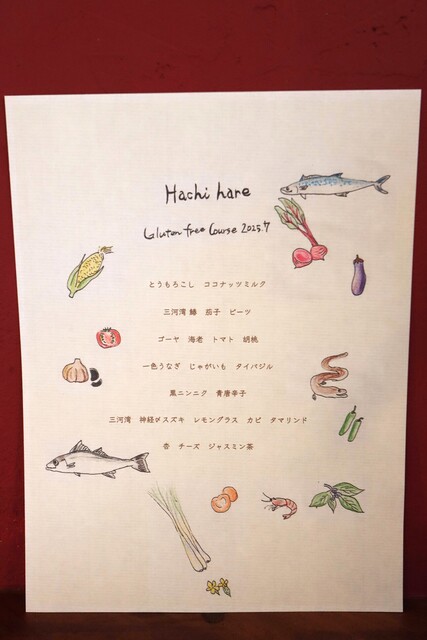 Hachi hare
Gluten free Course 2025.7
とうもろこし ココナッツミルク
三河湾 鰆 茄子 ビーツ
ゴーヤ 海老 トマト 胡桃
一色うなぎ じゃがいも タイバジル
黒ニンニク 青唐辛子
三河湾 神経〆スズキ レモングラス カピ タマリンド
杏 チーズ ジャスミン茶